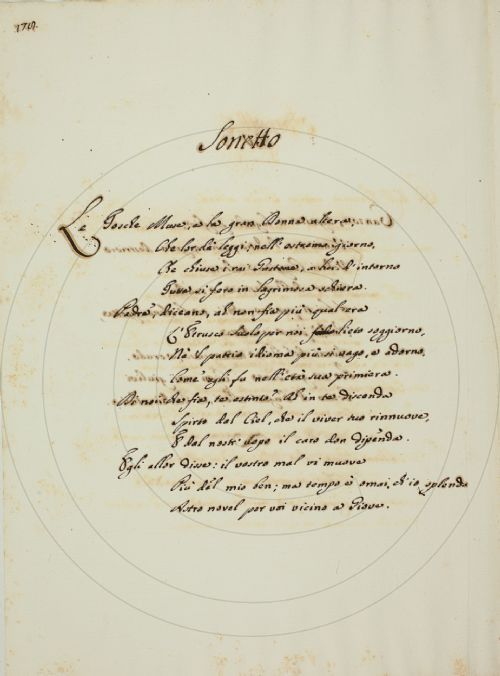 Sonetto
Le Tosche Muse, e la gran Donna altera
Che lor dà leggi, nell' estremo giorno,
Che chiuse i rai Gastone, a lui d'intorno
Tutte si fero in lagrimosa schiera.
Padre, diceano, ah non fia più qual'era
L' Etrusco Suolo per noi lieto soggiorno,
Nè 'l patrio idioma più sì vago, e adorno,
Com' egli fu nell' età sua primiera.
Di noi che fia, te estinto? Ah in te discenda
Spirto dal Ciel, che il viver tuo rinnuove,
E dal nostr' dopo il caro don dipenda.
Egli allor disse: il vostro mal vi muove
Più del mio ben; ma tempo è omai, ch'io splenda
Astro novel per voi vicino a Giove.